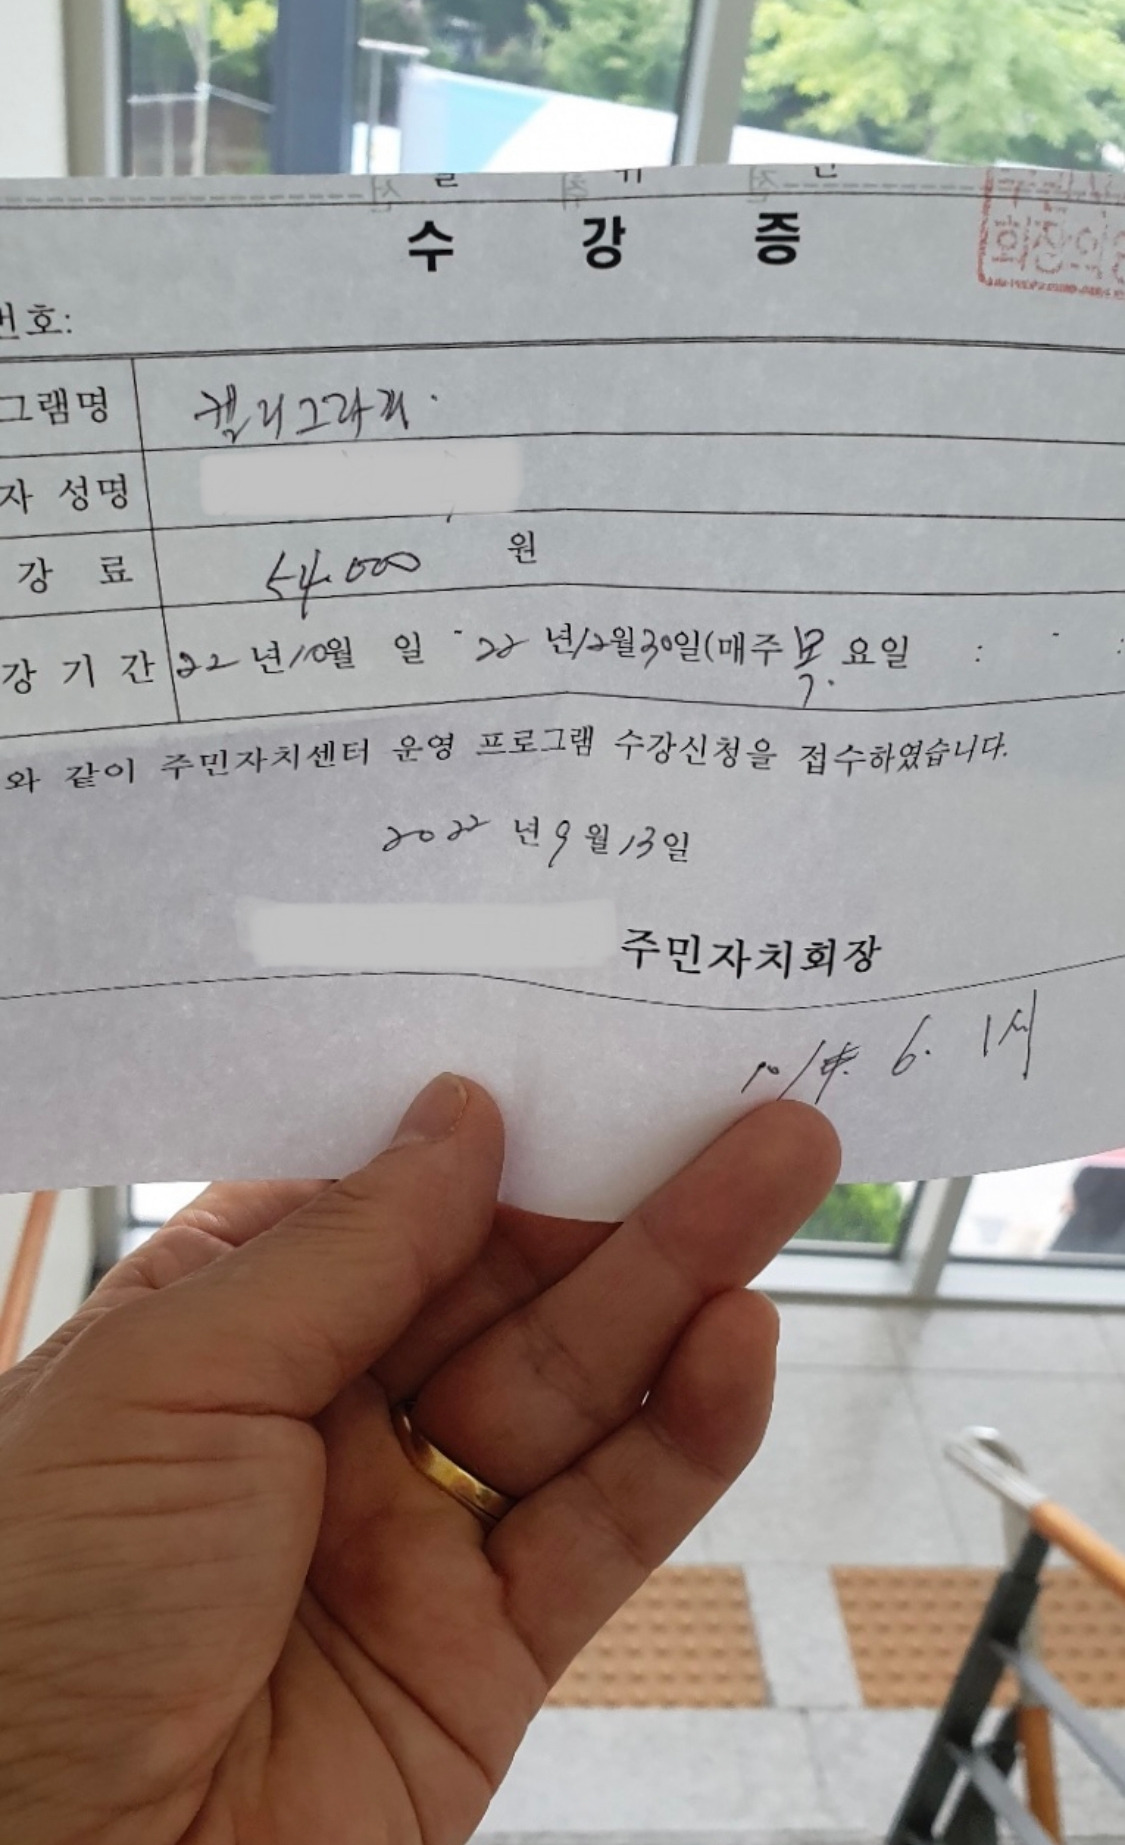 수 강 증
번호:
그램명 캘리그라피.
자 성명
강 료 54.000 원
강 기 간 22년 10월 일 - 22년 12월 30일(매주 목 요일 : :
와 같이 주민자치센터 운영 프로그램 수강신청을 접수하였습니다.
2022년 9월 13일
주민자치회장
6. 1시